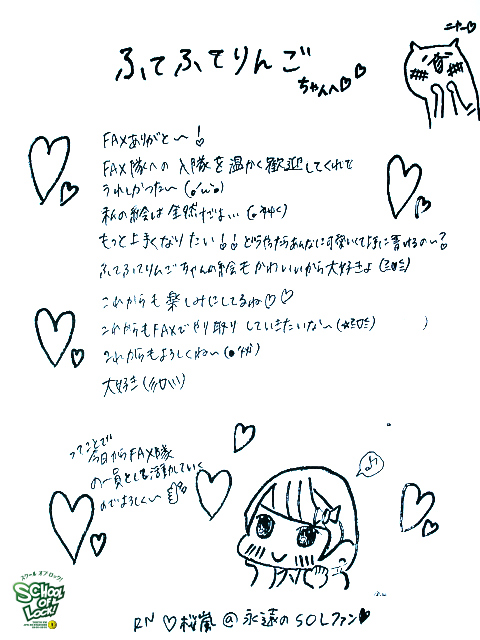 ニヤー♡
ふてふてりんご
ちゃんへ♡♡
FAXありがと〜!
FAX隊への入隊を温かく歓迎してくれて
うれしかった〜(o'ω'o)
私の絵は全然だよ…
もっと上手くなりたい!!どうやったらあんなに可愛いて上手に書けるの〜?
ふてふてりんごちゃんの絵もかわいいから大好きよ
これからも楽しみにしてるね♡♡
これからもFAXでやり取りしていきたいな〜
これからもよろしくね〜
大好き
ってことで
今日からFAX隊
の一員としても活動していく
のでよろしく〜
♪
スクール オブ ロック!
SCHOOL OF LOCK!
RN ♡桜嵐@永遠のSOLファン♥